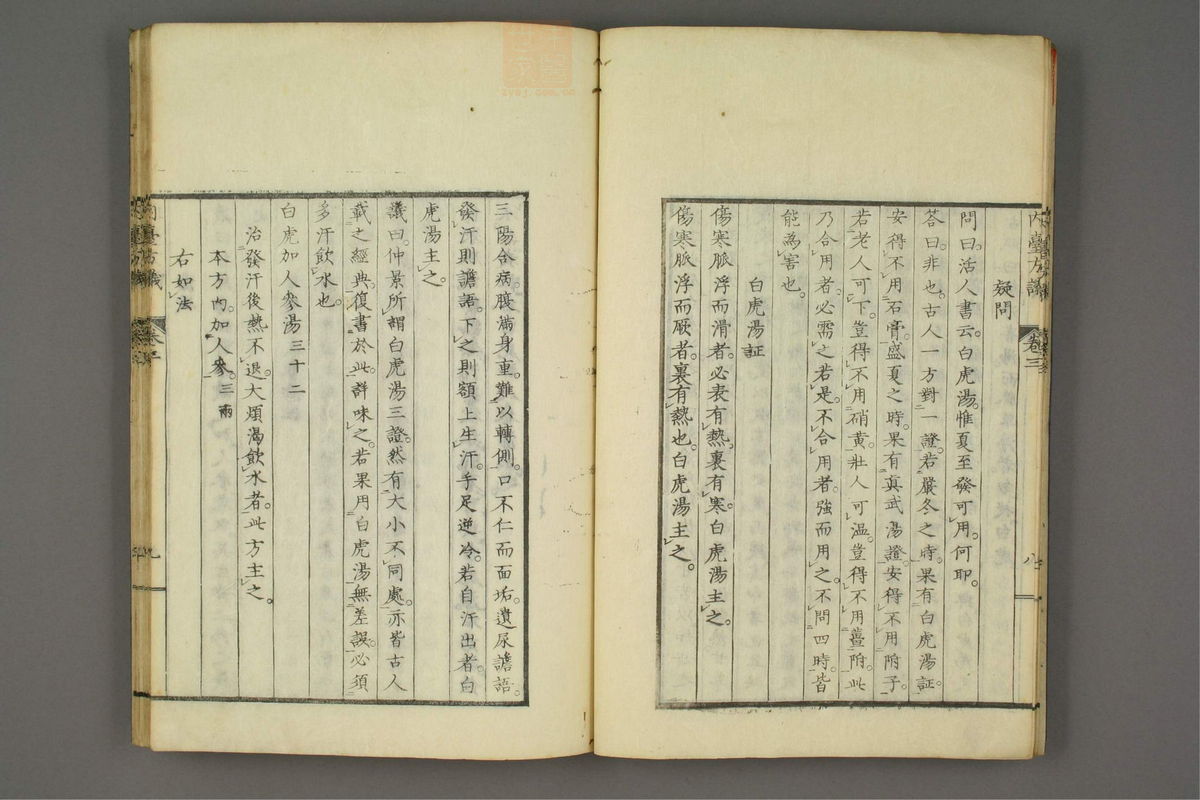 疑問
問曰活人書云白虎湯惟夏至發可用何耶
答曰非也古人一方對一證若嚴冬之時果有白虎湯証
安得不用石膏盛夏之時果有真武湯證安得不用附子
若老人可下豈得不用硝黃壯人可溫豈得不用薑附此
乃合用者必需之若是不合用者強而用之不問四時皆
能為害也
白虎湯証
傷寒脈浮而滑者必表有熱裏有寒白虎湯主之
傷寒脈浮而厥者裏有熱也白虎湯主之
三陽合病腹滿身重難以轉側口不仁而面垢遺尿譫語
發汗則譫語下之則額上生汗手足逆冷若自汗出者白
虎湯主之
議曰仲景所謂白虎湯三證然有大小不同處亦皆古人
載之經典復書於此詳味之若果用白虎湯無差誤必須
多汗飲水也
白虎加人參湯三十二
治發汗後熱不退大煩渴飲水者此方主之
本方內加人參三兩
右如法
內臺方議
卷三
八